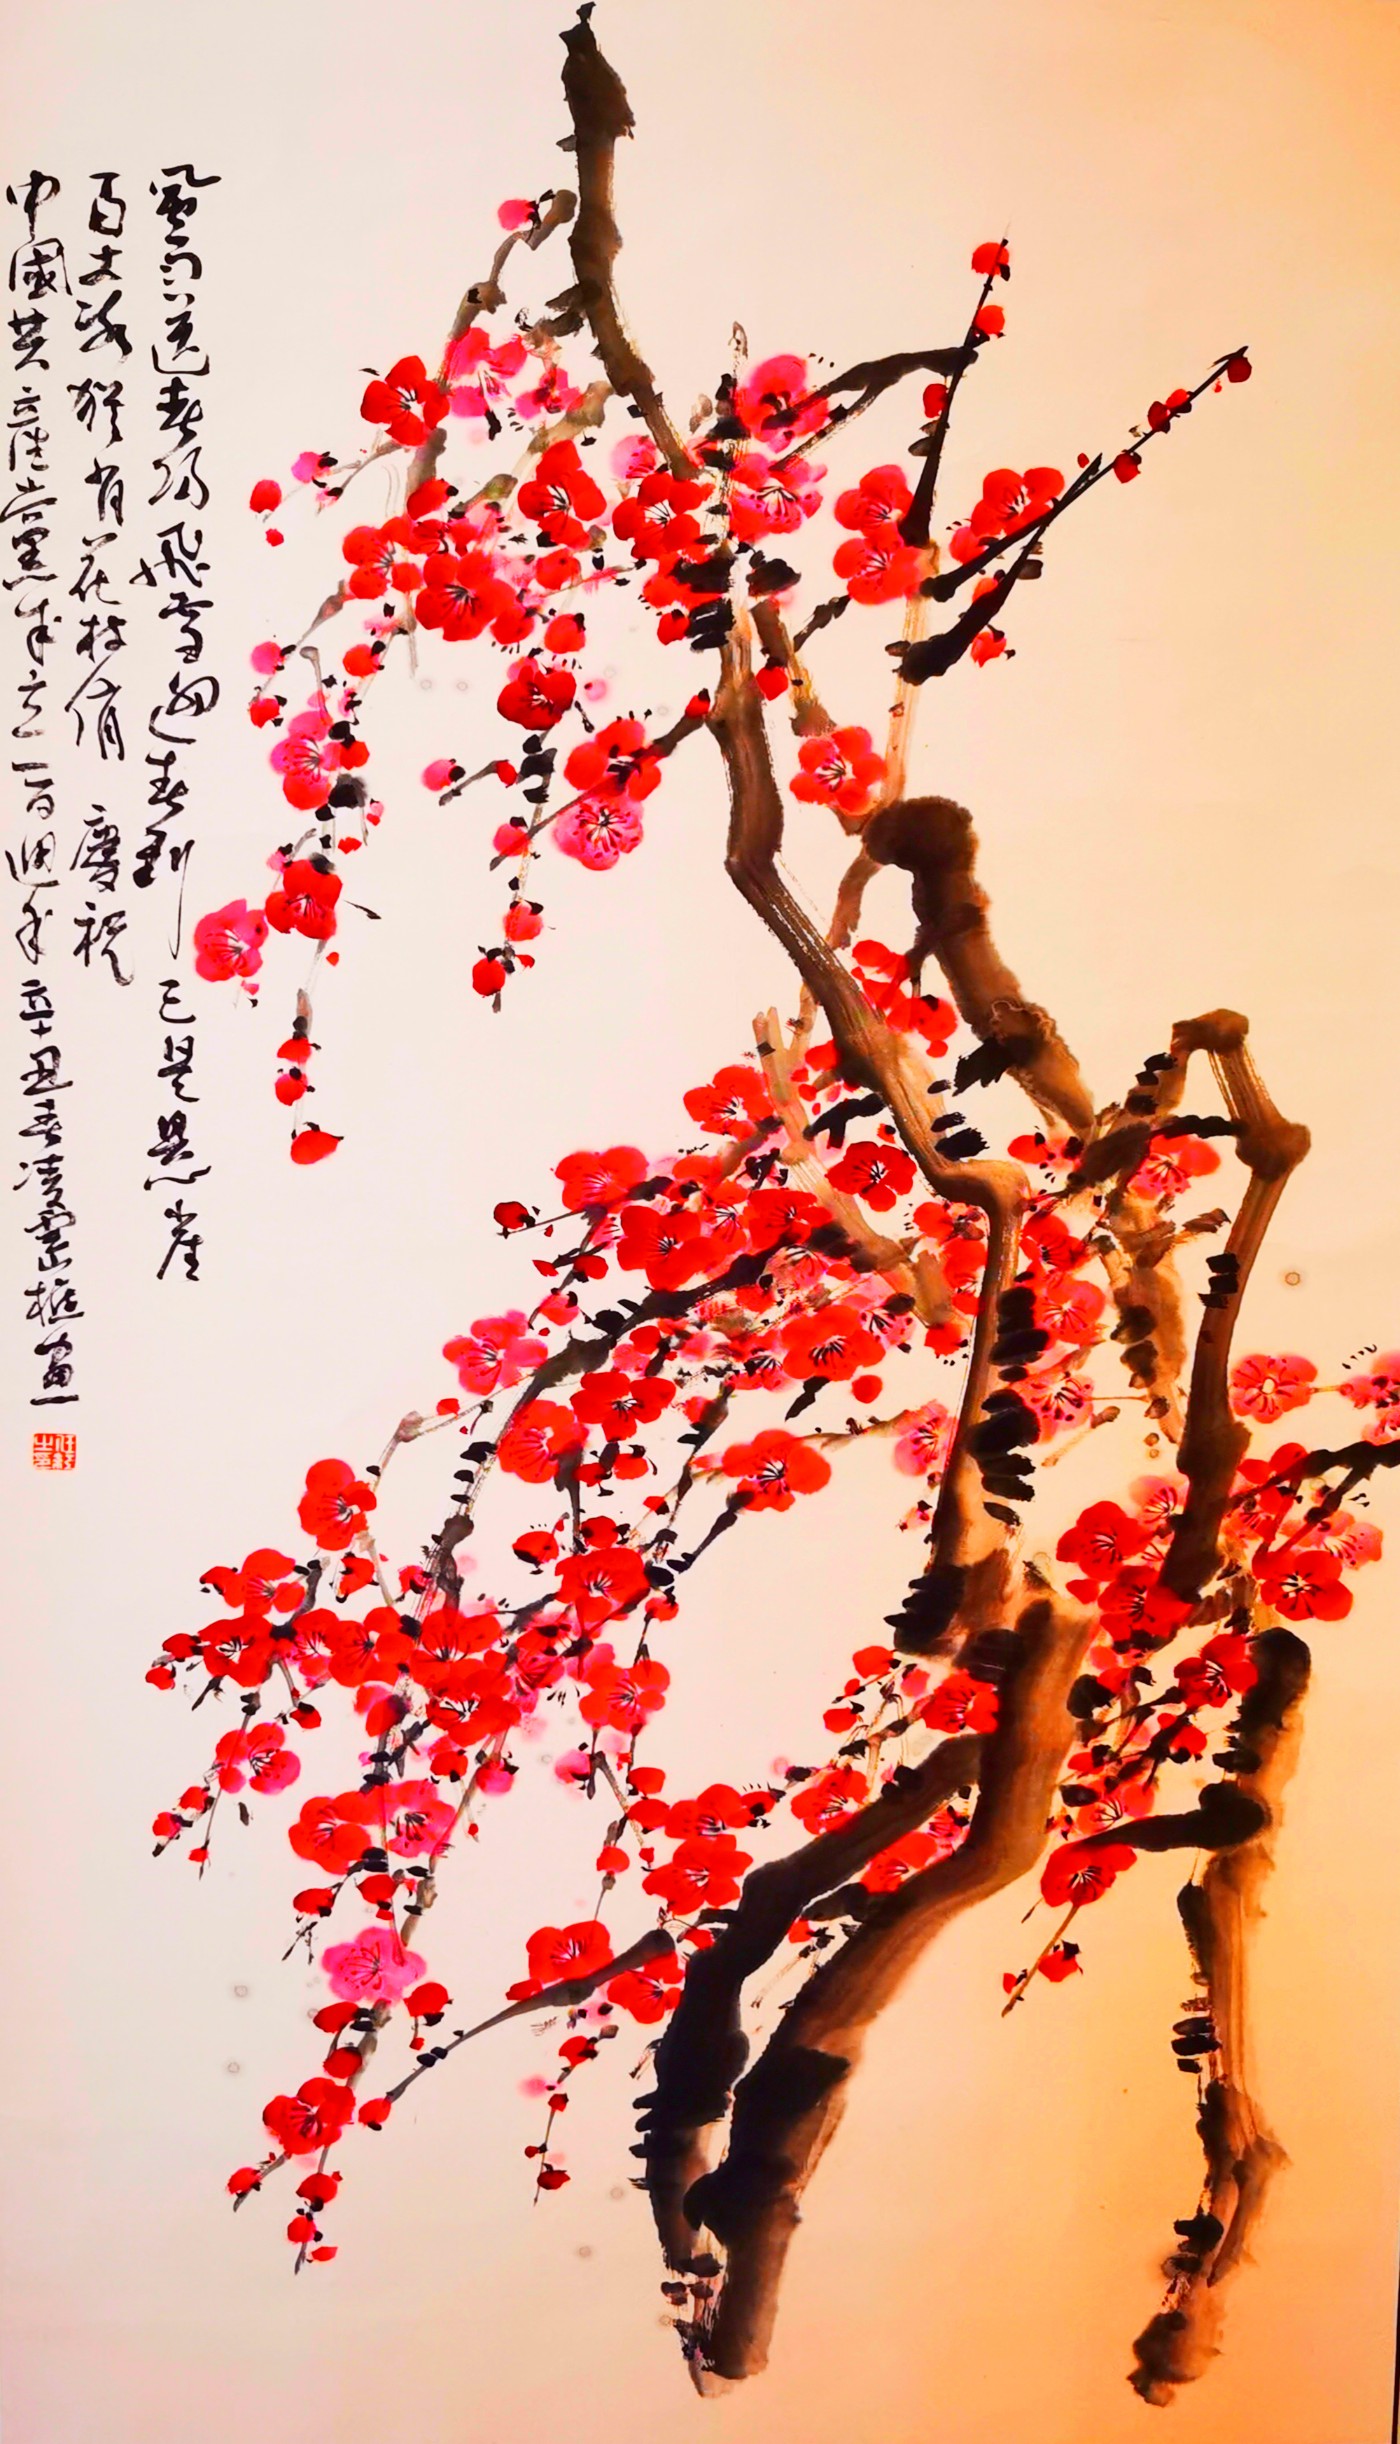 風雨送春歸飛雪迎春到已是懸崖
百丈冰猶有花枝俏慶祝
中國共產黨成立一百週年辛丑春凌雲樵畫